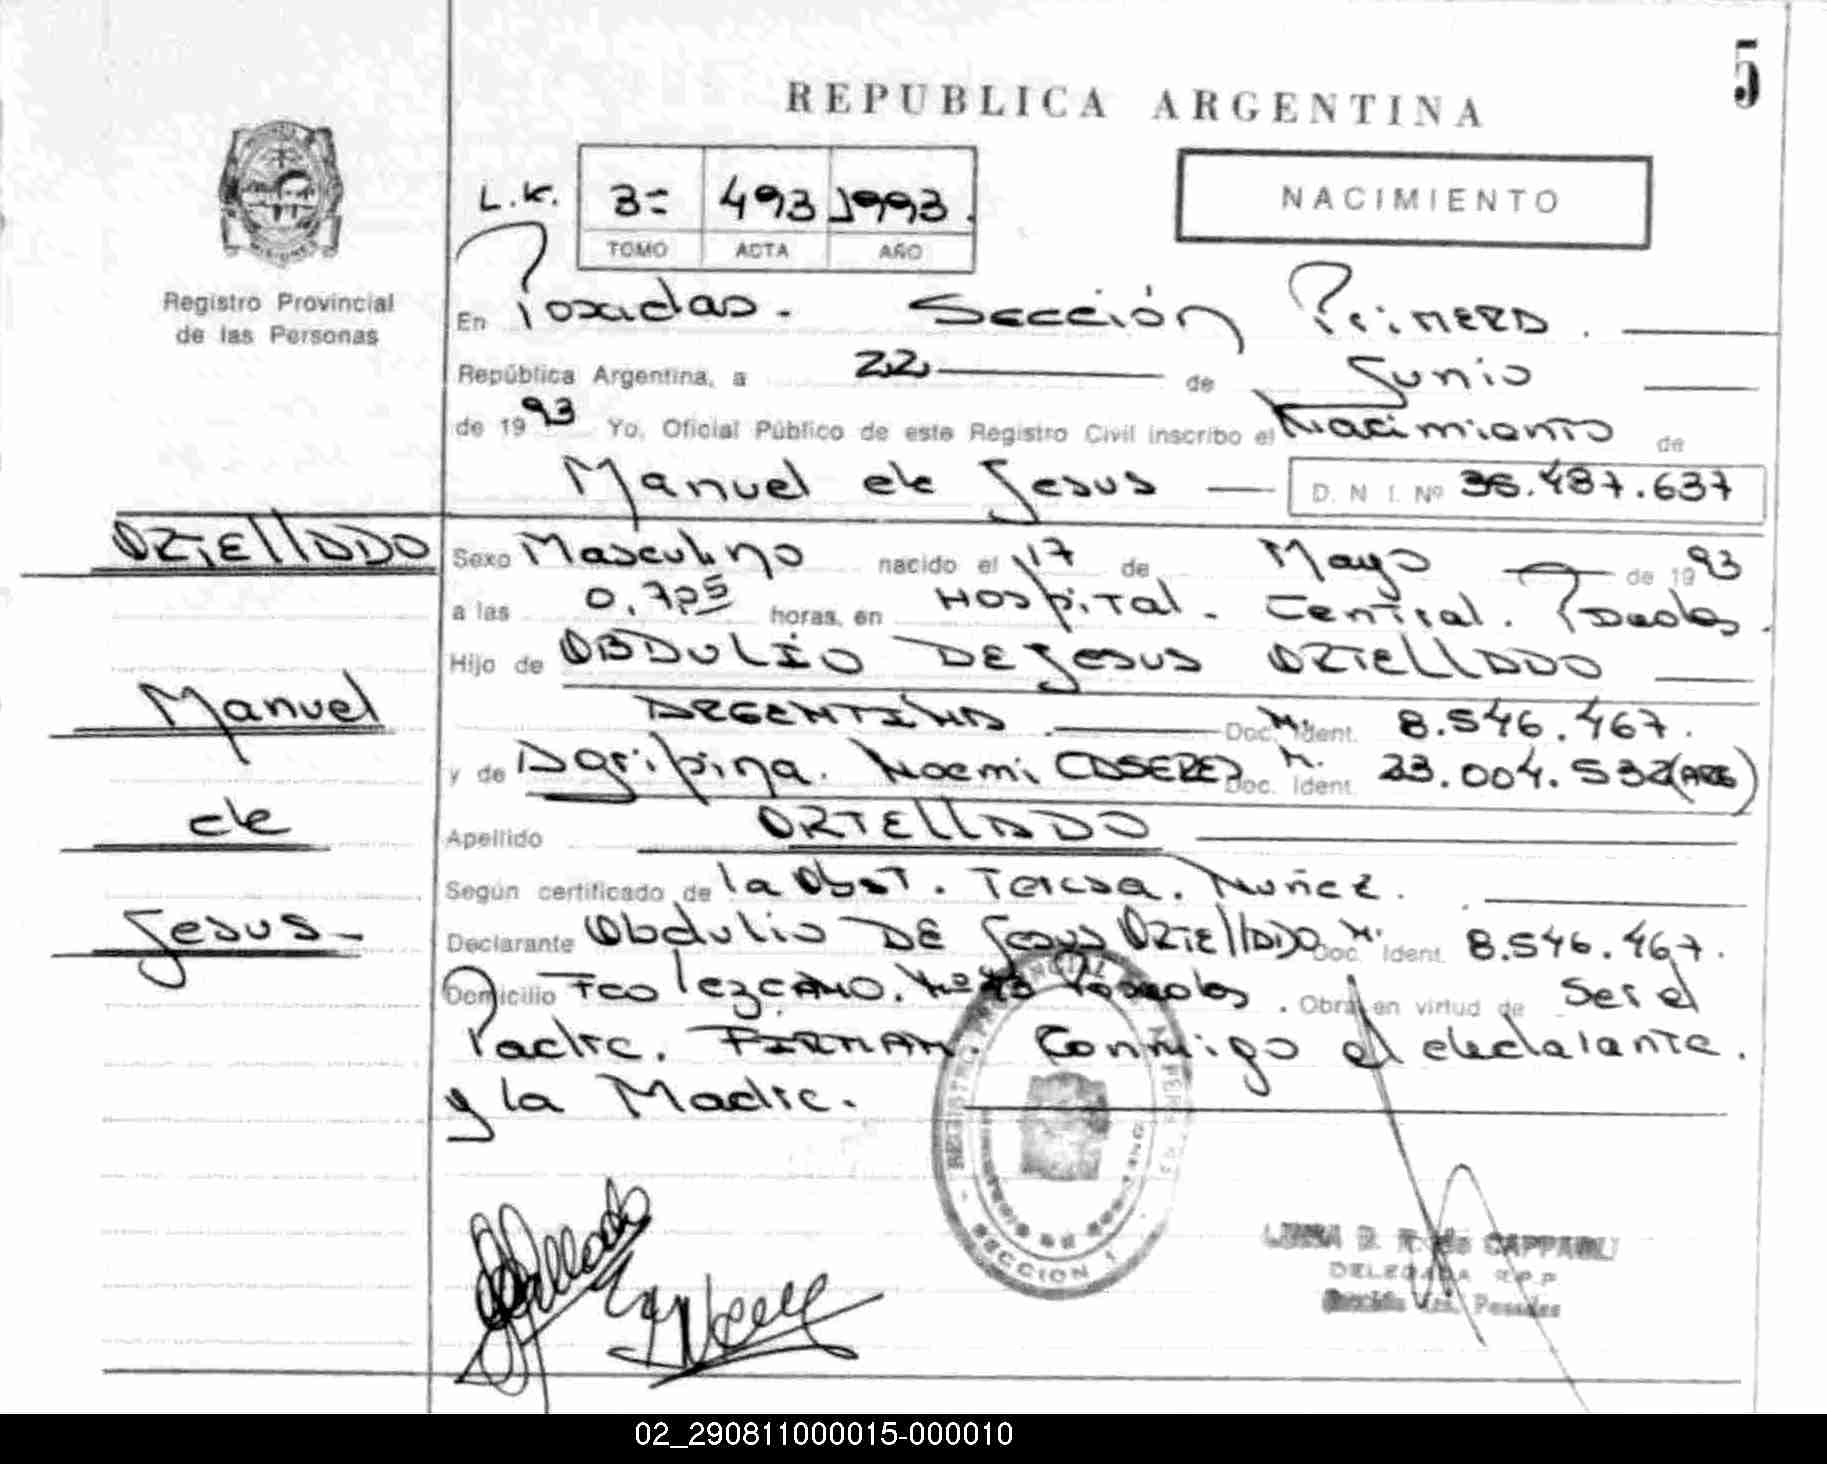 5
REPUBLICA ARGENTINA
NACIMIENTO
L.K. 3= 493 1993.
TOMO ACTA AÑO
Registro Provincial
de las Personas
En Posadas. Sección Primera.
República Argentina, a 22 de Junio
de 1993 Yo, Oficial Público de este Registro Civil inscribo el Nacimiento de
Manuel de Jesus D. N. I. Nº 36.487.637
ORTEllADO
Sexo Masculino nacido el 17 de Mayo de 1993
a las horas, en Hospital. Central. Posadas.
Hijo de OBDULIO DE Jesus ORTEllADO
Manuel
ARGENTINO Doc. Ident. M. 8.546.467.
y de Agripina. Noemi Doc. Ident. M. 23.004.532 (ARG)
de
Apellido ORTEllADO
Según certificado de la Obst. Teresa. Nuñez.
Jesus
Declarante Obdulio DE Jesus ORTEllADO Doc. Ident. M. 8.546.467.
Domicilio Fco lezcano. Posadas. Obra en virtud de Ser el
Padre. FIRMAN Conmigo el declarante.
y la Madre.
SECCION 1
DELEGADA R.P.P
02_290811000015-000010